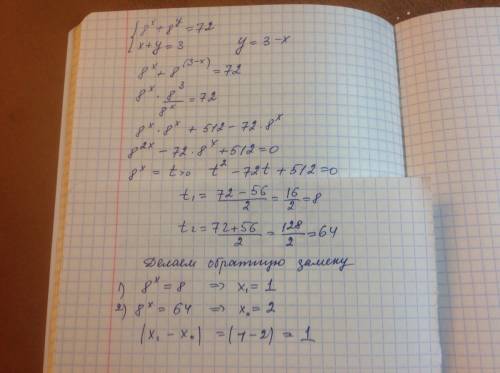 {8ˣ + 8ʸ = 72
{x + y = 3 y = 3 - x
8ˣ + 8⁽³⁻ˣ⁾ = 72
8ˣ · 8³/8ˣ = 72
8ˣ · 8ˣ + 512 - 72 · 8ˣ
8²ˣ - 72 · 8ˣ + 512 = 0
8ˣ = t>0 t² - 72t + 512 = 0
t₁ = (72 - 56)/2 = 16/2 = 8
t₂ = (72 + 56)/2 = 128/2 = 64
Делаем обратную замену
1) 8ˣ = 8 => x₁ = 1
2) 8ˣ = 64 => x₀ = 2
|x₁ - x₀| = (1 - 2) = 1